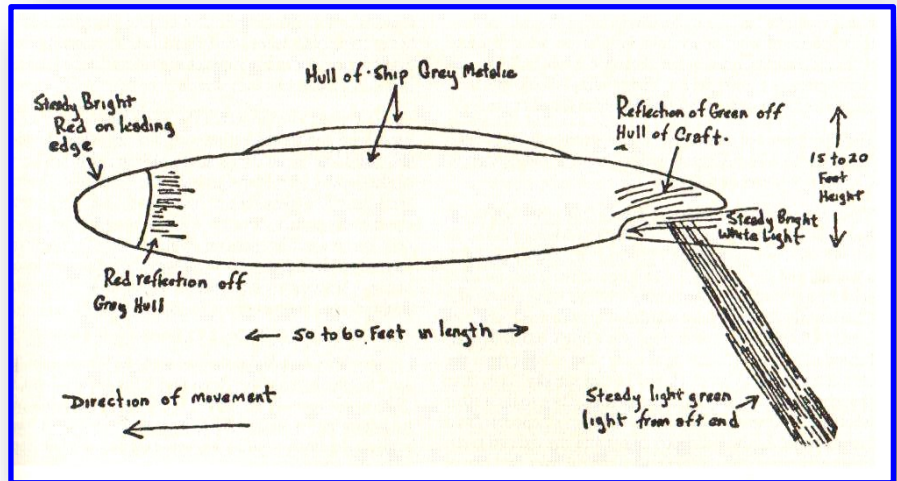 Hull of Ship Grey Metalic
Steady Bright
Red on leading
edge
Reflection of Green off
Hull of Craft.
15 to 20
Feet
Height
Steady Bright
White Light
Red reflection off
Grey Hull
50 to 60 Feet in length
Direction of movement
Steady light green
light from aft end